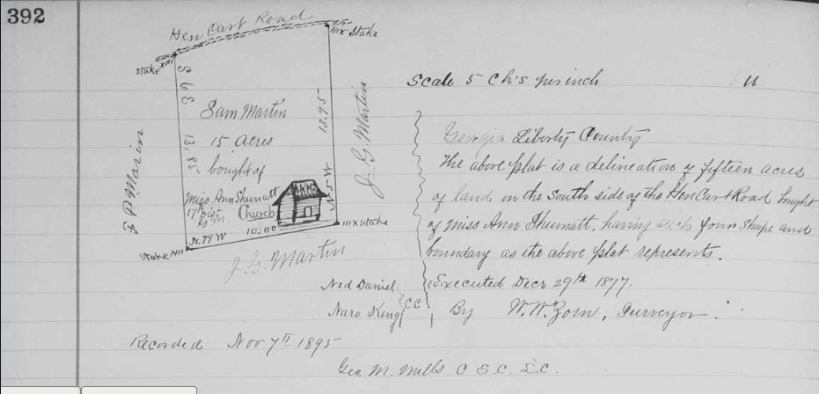 392
Hen Cart Road
Stake XIII
IIIX Stake
S 6 E
13,85
13.75
N 5 W
Sam Martin
15 acres
bought of
Miss Ann Shumatt
17th Dist
Church
10.00
N. 79 W
Stake XIII
IIIX Stake
J. G. Martin
J. G. Martin
Scale 5 Ch's per inch
Georgia Liberty County
The above plat is a delineation of fifteen acres
of land on the South side of the Hen Cart Road bought
of Miss Ann Shumatt, having such form shape and
boundary as the above plat represents.
Executed Decr 29th 1877.
By W. W. Zorn, Surveyor.
Ned Daniel
Naro King
C C
Recorded Nov 7th 1895
Geo M. Mills C S. C. L. C.